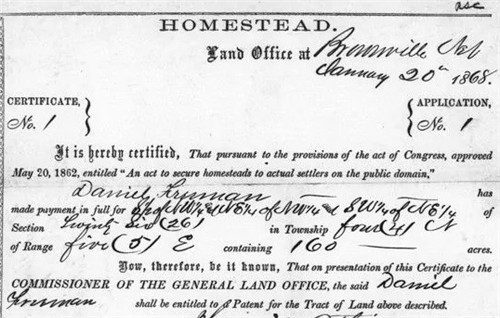 HOMESTEAD.
Land Office at Brownville Neb
January 20th 1868.
CERTIFICATE, No. 1
APPLICATION, No. 1
It is hereby certified, That pursuant to the provisions of the act of Congress, approved
May 20, 1862, entitled "An act to secure homesteads to actual settlers on the public domain,"
Daniel Freeman has
made payment in full for S½ of NW¼ & NE¼ of NW¼ & SW¼ of NE¼
Section twenty Six (26) in Township four (4) N
of Range five (5) E containing 160 acres.
Now, therefore, be it known, That on presentation of this Certificate to the
COMMISSIONER OF THE GENERAL LAND OFFICE, the said Daniel
Freeman shall be entitled to a Patent for the Tract of Land above described.